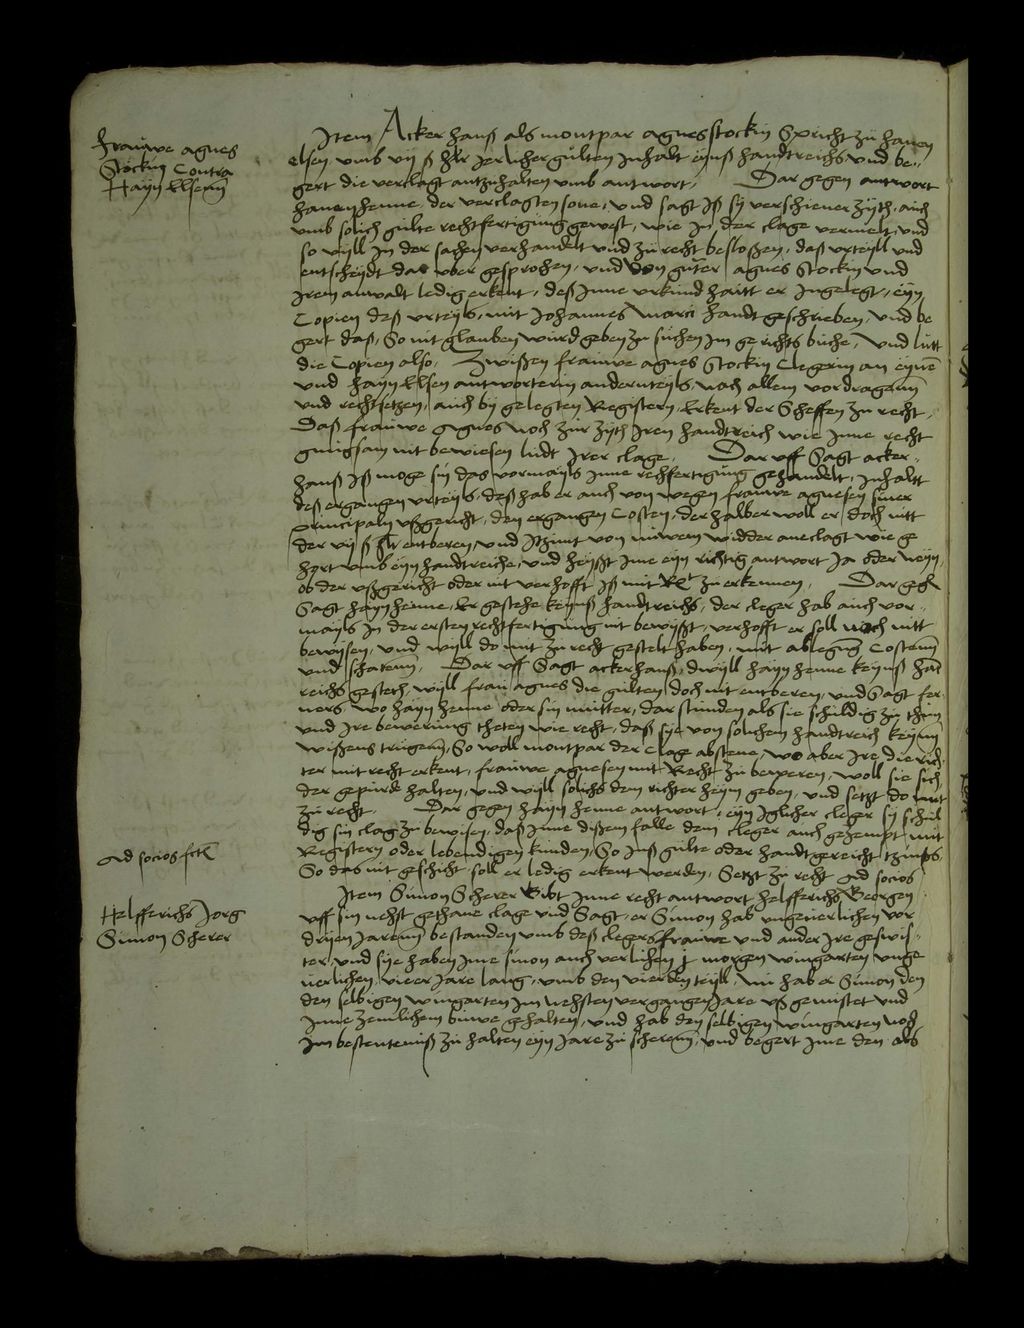 Frauwe agnes
Stockin Contra
Hayn Elsenn
Item Acker Hanß als montpar agnes Stockin Spricht zu hanen
elsen umb vij ß hlr jerlicher gulten Inhalt eynß handtreichs und be-
gert die verclagt antzuhalten umb antwort, Dar gegen antwort
hanen henne, der verclagten sone, und sagt Iß sy verschiener Zyth, auch
umb solich gulte rechtfertigung gewest, wie In der clage vermelt, und
so vyll In der sachen verhandelt und zu recht besloßen, das urteyll und
entscheydt dar uber gesprochen, und von guter agnes Stockin und
Irem anwalt ledig erkent, deß Inne urkund haitt er Ingelegt, eyn
Copien deß urteyls, mit Johannes Marci handt geschrieben, und be
gert das, So nit glauben wurd geben zu suchen Im gerichts buche, und lutt
die Copien also, Zwißen frauwe agnes Stockin Clegerin an eynem
und Hayn Elsen antworterin anderntteyls, nach allem vordragenn
und rechtsetzen, auch by gelegten Registern, Erkent der Scheffen zu recht,
Daß frauwe Agnes noch zur Zyth Iren handtreich wie Inne recht
gnugsam nit bewiesen ludt Irer clage, Dar uff Sagt acker-
hanß Iß moge sin das vormayls Inne rechfertigung gehandelt, Inhaltt
deß ergangen urteyls, deß hab er auch von wegen frauwe agnesen siner
principaln ußgericht, den ergangen Costen, der halber woll er doch nitt
der vij ß hlr entberen, und Itzunt von nuwem widder aneclagt wie ge
hort umb eyn handtreiche, und heyßt Ime eyn richtig antwort Ja oder neyn,
ob der ußgericht oder nit verhofft Iß mit Recht zu erkennen, Dar gegen
Sagt hayn henne, Er gestehe keynß handtreichs, der cleger hab auch vor-
mayls In der ersten rechtfertigung nit bewyßt, verhofft er soll noch nitt
bewysen, und will do mit zu recht gestelt haben, mit ablegung Costenn
und schatenn, Dar uff Sagt ackerhanß, dwyll hayn henne keynß handt
reichs gesteth, wyll frau agnes die gulten doch nit entberen, und Sagt fer
ners, wo hayn henne oder sin mutter, dar stunden als sie schuldig zu thun
und Ire bewerung theten wie recht, daß sye von solichem handtreich keynn
wißens trugenn, So woll montpar der Clage abstene, wo aber Ire die rich
ter mit recht erkent, frauwe agnesen mit Recht zu beweren, woll sie sich
der gepurde halten, und wyll solichs dem richter heym geben, und setzt do mit
zu recht, Dar gegen hayn henne antwort, eyn Iglicher cleger sy schul
dig sin clag zu bewisen, das Inne dißem falle dem cleger auch gezempt mit
Registern oder lebendigen kunden, So Inß gulte oder handtgereicht
So das nit geschicht soll er ledig erkent werden, Setzt zu recht Ad socios
Ad socios fctl
Helfferichs Jorg
Simon Scherer
Item Simon Scherer Gibt Inne recht antwort helfferichs Georgen
uff sin nehst gethane clage und Sagt, er Simon hab ungeverlichen vor
dryen Jarenn bestanden umb deß clegers frauwe und ander Ire geswis-
ter, und sye haben Ime simon auch verlichen j morgen wingarten unge
verlichen, vieer Jare lang, umb den vierden teyll, nu hab er Simon den
den selbigen wingarten Im nehsten vergangen Jare uß gemistet und
Inne zemlichem buwe gehalten, und hab den selbigen wingarten noch
Im bestenteniß zu halten eyn Jare zu scherenn, und begert Ime den ab